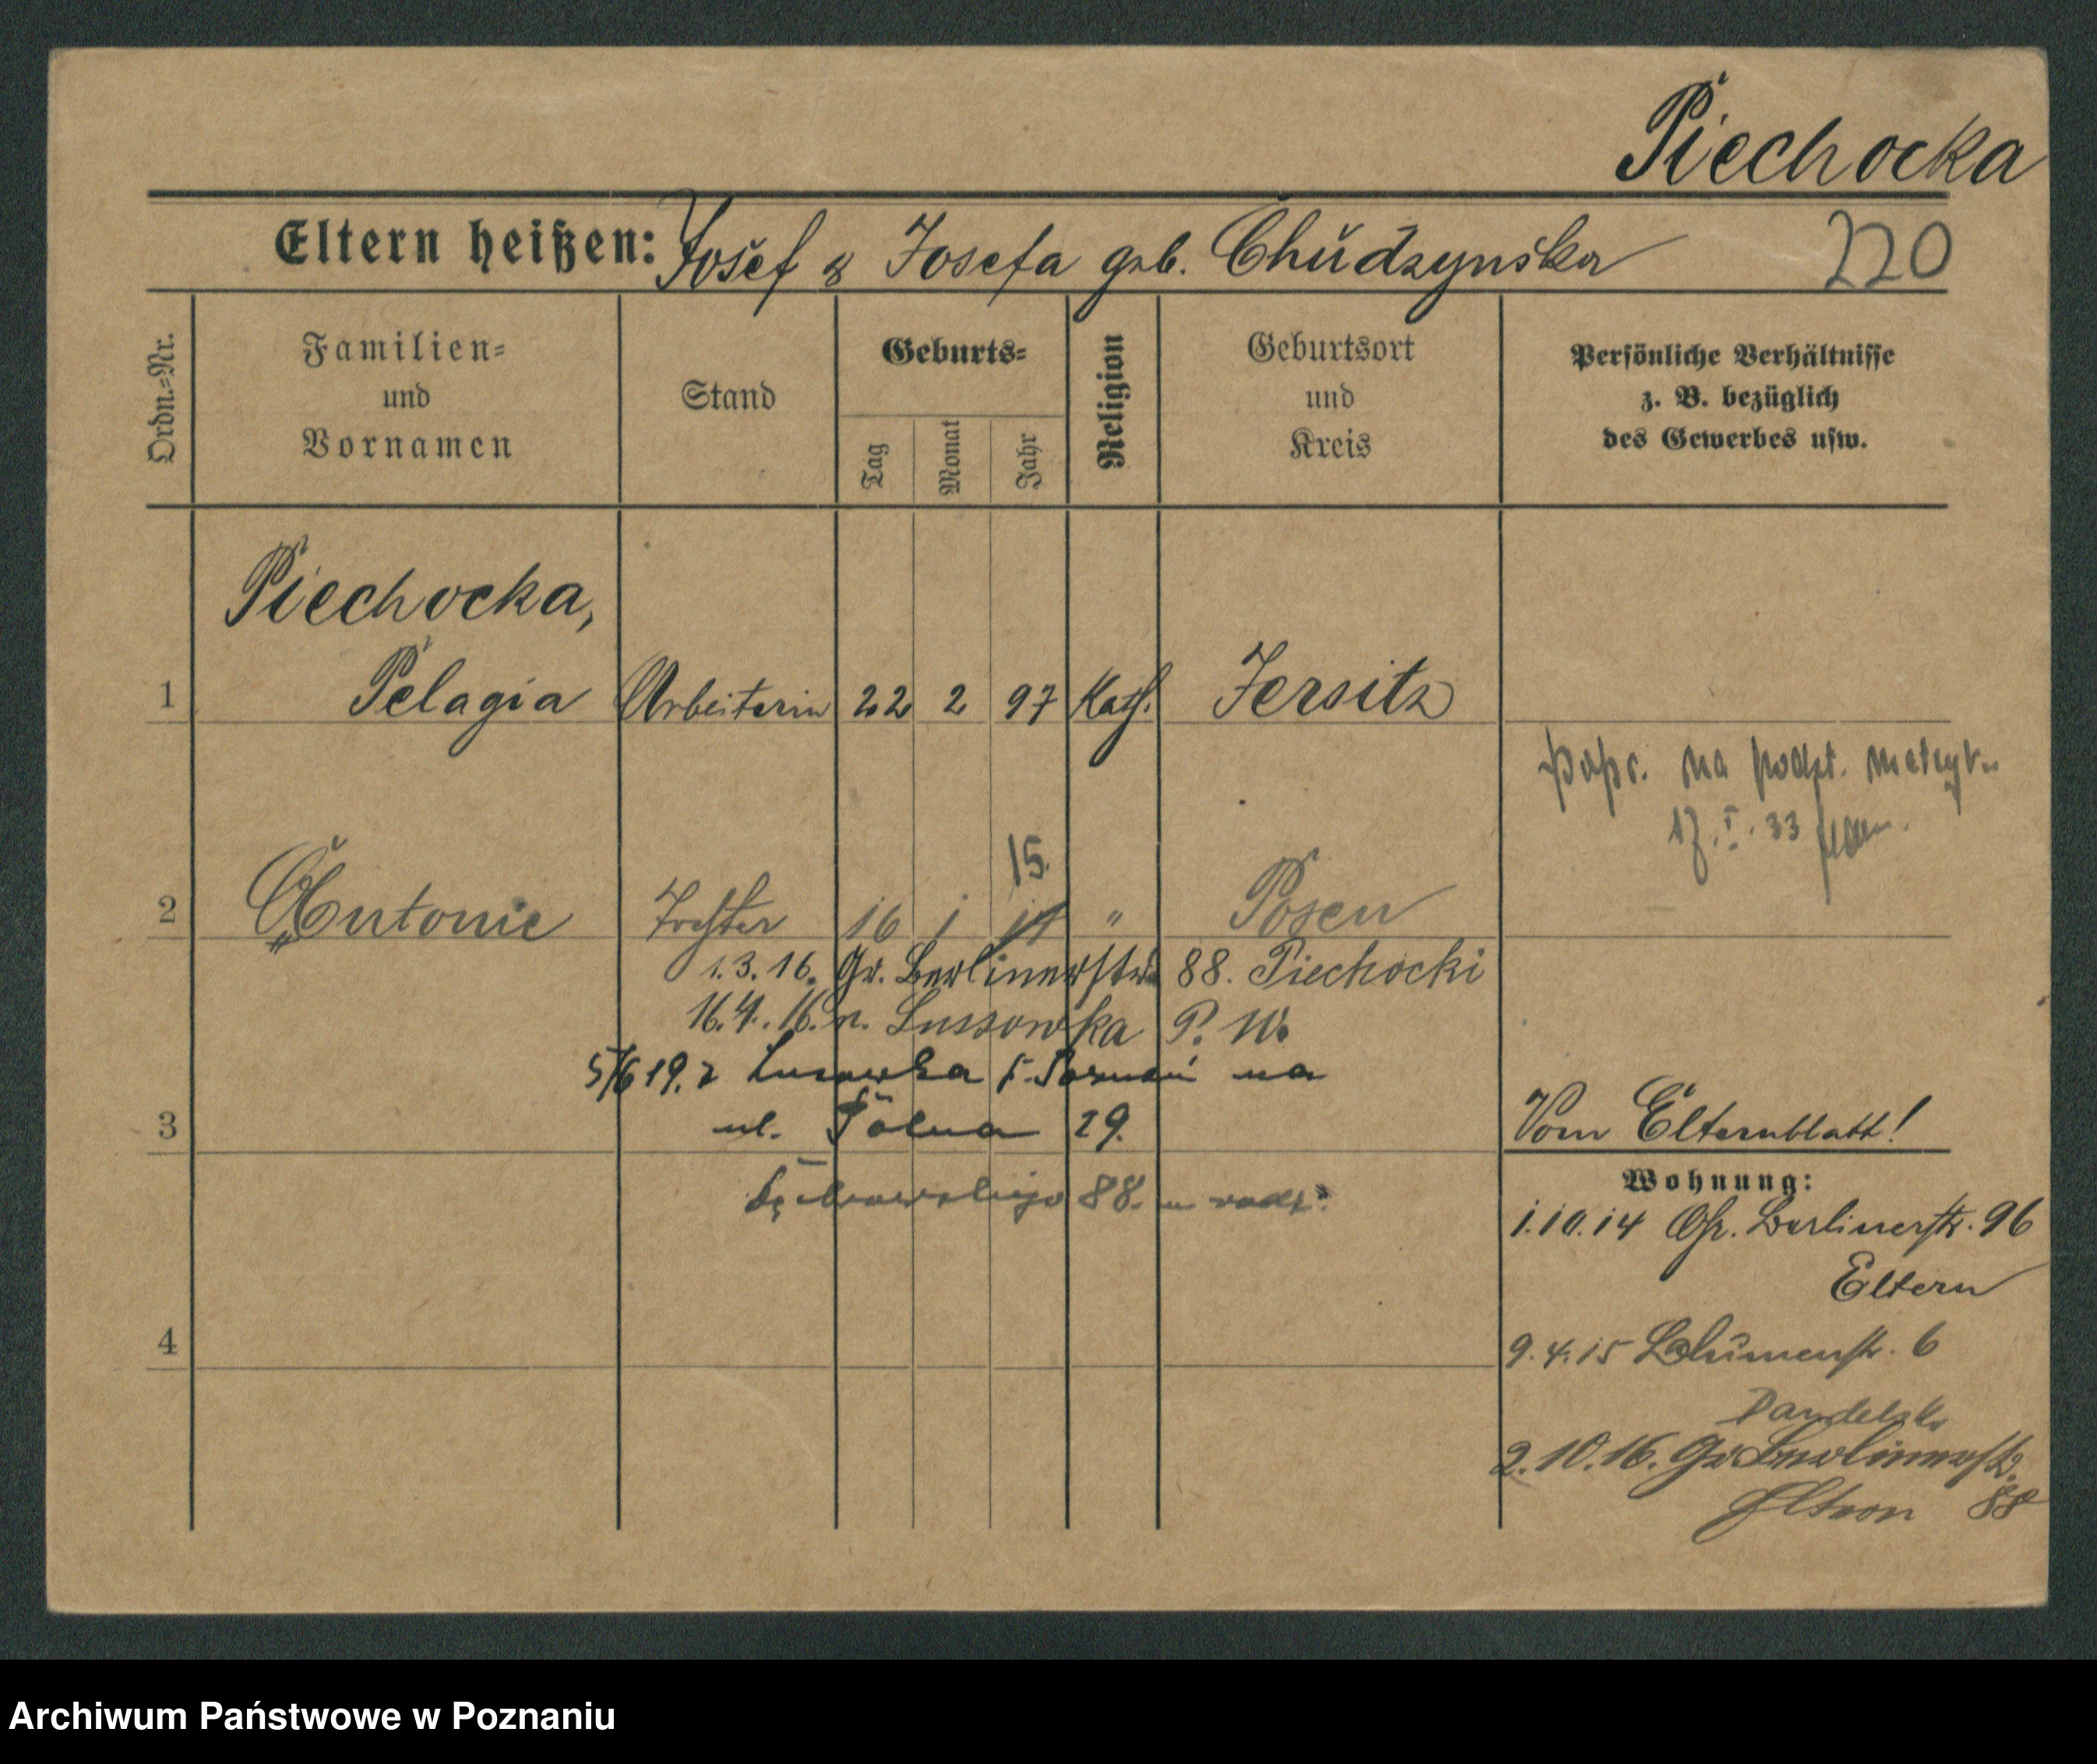 Piechocka
Eltern heißen: Josef & Josefa geb. Chudzynska 220
Ordn.=Nr.
Familien=
und
Vornamen
Stand
Geburts=
Tag
Monat
Jahr
Religion
Geburtsort
und
Kreis
Persönliche Verhältnisse
z. B. bezüglich
des Gewerbes usw.
Piechocka,
1 Pelagia Arbeiterin 22 2 97 Kath. Jersitz
na
17. I. 33
15.
2 Antonie Tochter 16 1 " Posen
1.3.16. Gr. Berlinerstr. 88. Piechocki
16.4.16. n. Lussowka P. W.
5/6 19. z Lusowka Poznań na
3 ul. Polna 29.
Dąbrowskiego 88.
Vom Elternblatt!
Wohnung:
1.10.14 Gr. Berlinerstr. 96
Eltern
4
9.4.15 Blumenstr. 6
2.10.16. Gr Berlinerstr.
Eltern 88
Archiwum Państwowe w Poznaniu